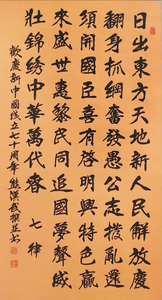 日出東方天地新人民解放慶
翻身抓綱奮發愚公志撥亂還
須開國臣喜有明興特色贏
來盛世惠黎民同追國夢聲威
壯錦綉中華萬代春 七律
歡慶新中國成立七十周年熊漢撰並书